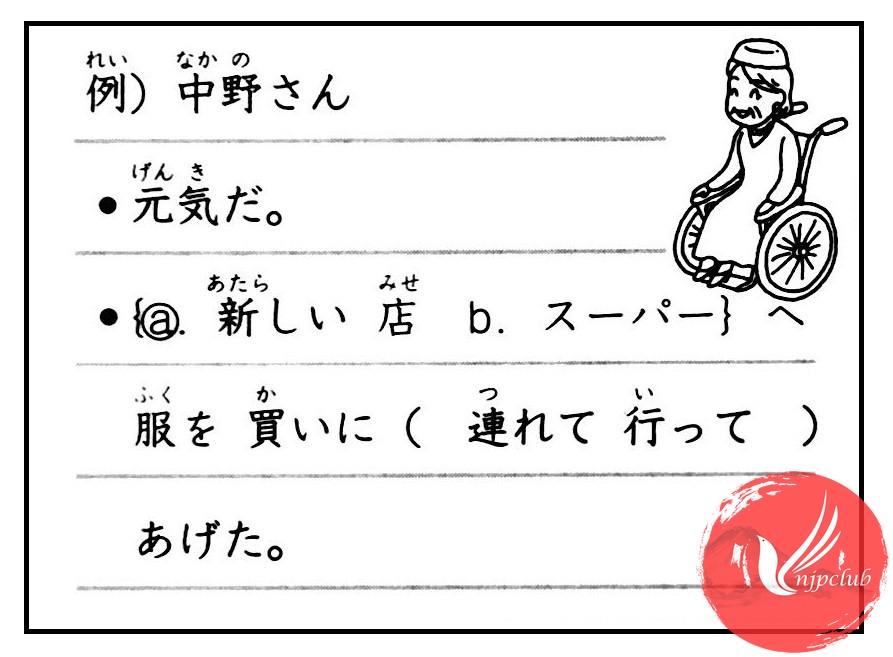 れい なかの
例）中野さん
げんき
●元気だ。
あたら みせ
●{ⓐ. 新しい 店 b. スーパー} へ
ふく か つ い
服を 買いに （ 連れて 行って ）
あげた。
njpclub